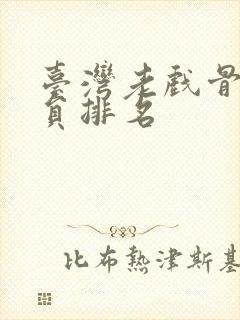 臺灣老戲骨
員排名
比布熱津斯基